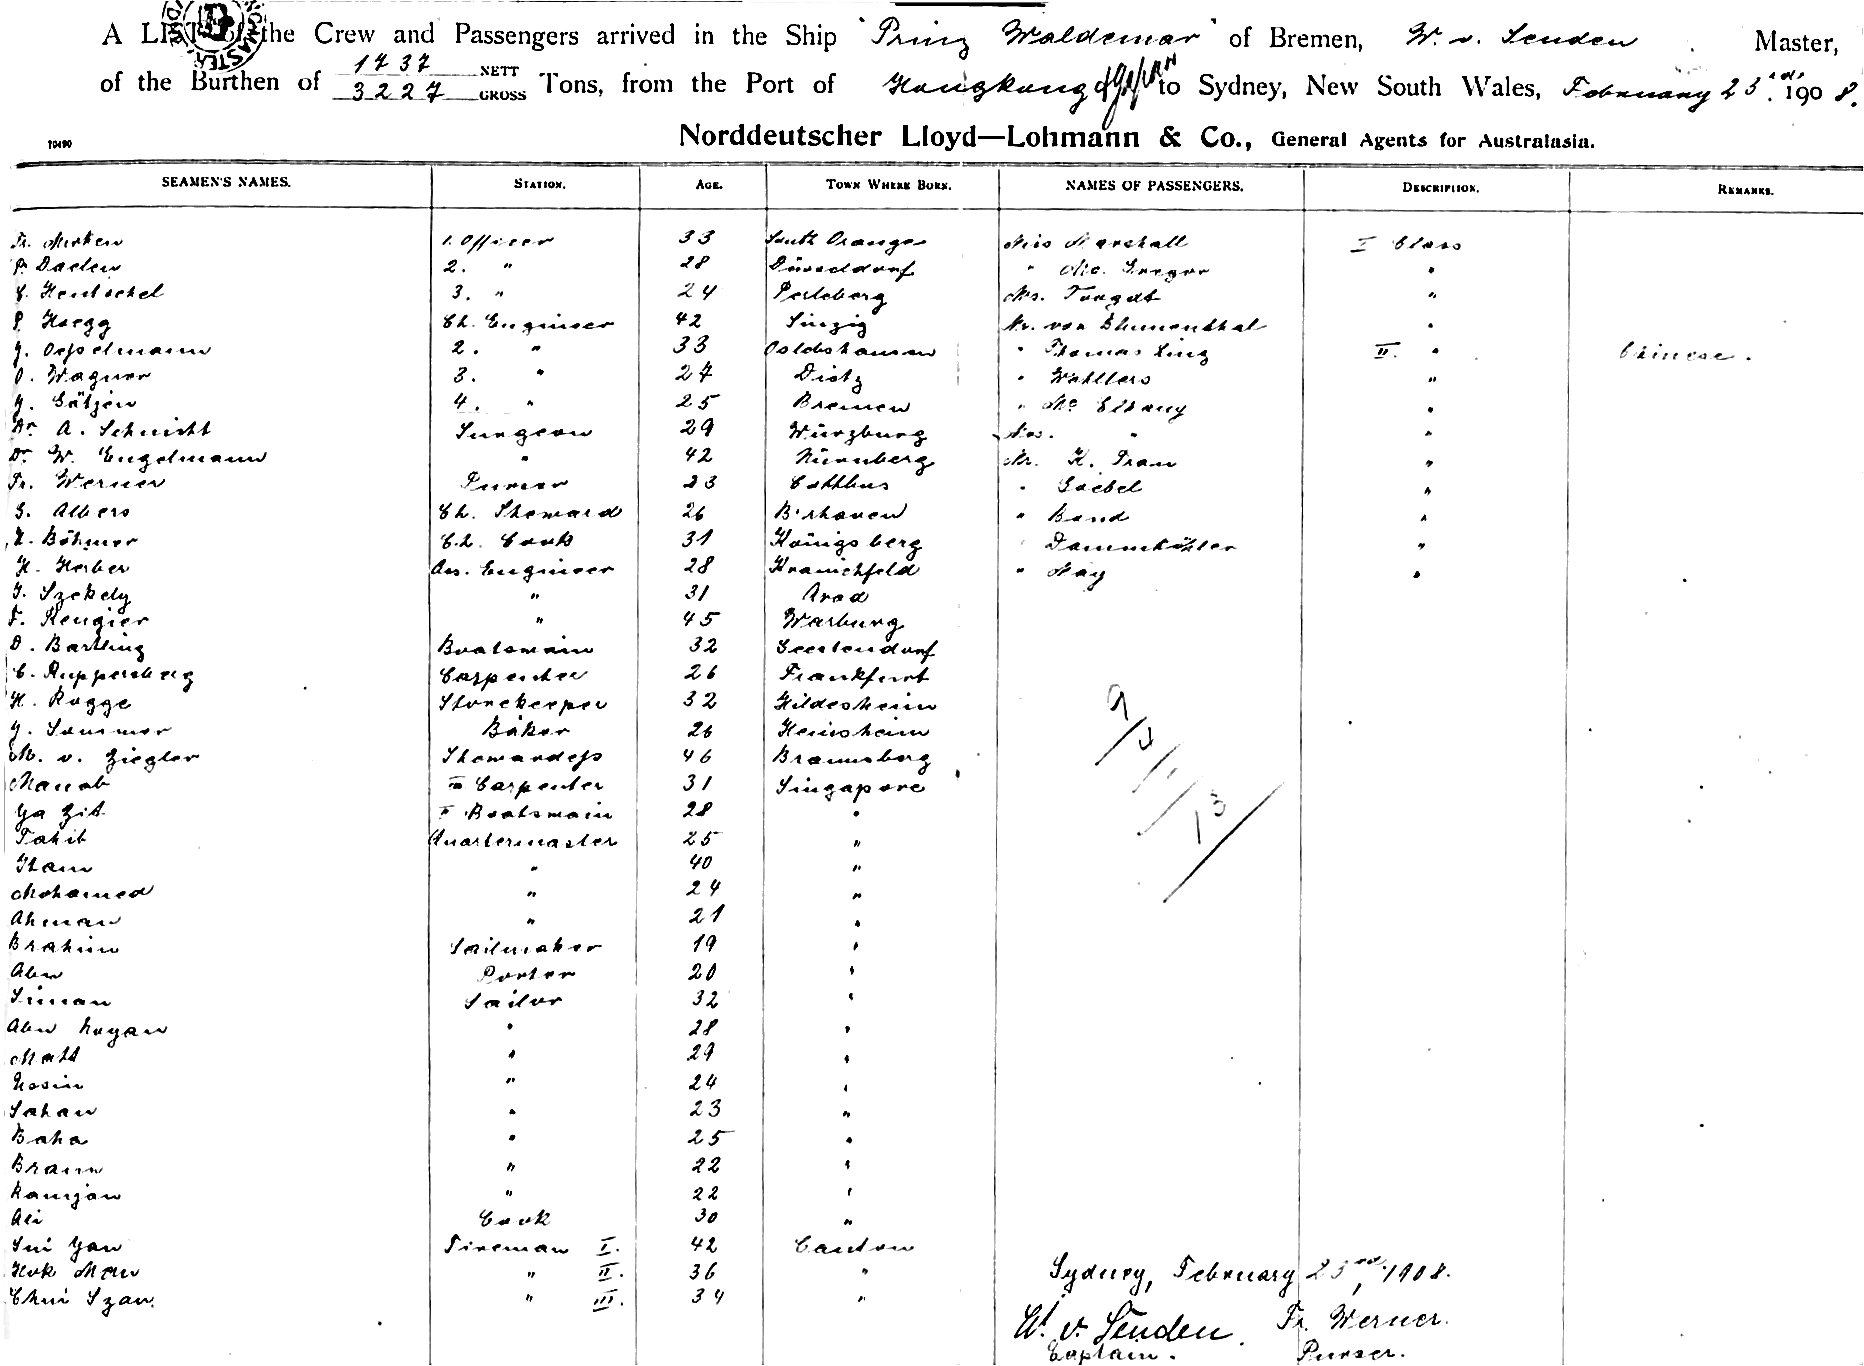 A LIST of the Crew and Passengers arrived in the Ship "Prinz Waldemar" of Bremen, W. v. Senden . Master,
of the Burthen of 1737 NETT 3227 GROSS Tons, from the Port of Hongkong & Japan to Sydney, New South Wales, February 23rd. 1908.
Norddeutscher Lloyd—Lohmann & Co., General Agents for Australasia.
70490
SEAMEN'S NAMES. STATION. AGE. TOWN WHERE BORN. NAMES OF PASSENGERS. DESCRIPTION. REMARKS.
Fr. 1. Officer 33 South Orange Miss Marshall I Class
P. Daelen 2. " 28 Düsseldorf " Mc. Gregor "
C. Hentschel 3. " 24 Perleberg Mrs. "
P. Haegg Ch. Engineer 42 Sinzig Mr. von Blumenthal "
J. Oesselmann 2. " 33 " Thomas Ling II. " Chinese.
O. Wagner 3. " 27 Dietz " Wahllers "
J. Götzen 4. " 25 Bremen " Mc "
Dr. A. Schmidt Surgeon 29 Würzburg Mrs. " "
Dr. W. Engelmann " 42 Nürnberg Mr. K. "
Fr. Werner Purser 23 Cottbus " Goebel "
G. Albers Ch. Steward 26 B'rhaven " Bond "
H. Böhmer Ch. Cook 31 Königsberg " Dammköhler "
H. Herber Ass. Engineer 28 Kranichfeld " Hay "
J. Szekely " 31 Arad
F. Rengier " 45 Warburg
D. Bartling Boatsmain 32 Geestendorf
C. Ruppersberg Carpenter 26 Frankfurt
H. Rogge Storekeeper 32 Hildesheim
J. Sommer Baker 26 Heinsheim
M. v. Ziegler Stewardess 46 Braunsberg
Manab II Carpenter 31 Singapore
Ga Zit I Boatsmain 28 "
Tahib Quartermaster 25 "
Itam " 40 "
Mohamed " 24 "
Ahman " 21 "
Brahim Sailmaker 19 "
Abu Porter 20 "
Siman Sailor 32 "
Abu " 28 "
Matt " 29 "
Hosin " 24 "
Sahan " 23 "
Baha " 25 "
Braim " 22 "
Ramjan " 22 "
Ali Cook 30 "
Sui Yow Fireman I. 42 Canton
Hok Man " II. 36 "
Chui Szan. " III. 34 "
9/4/
/13
Sydney, February 23rd, 1908.
W. v. Senden. Fr. Werner.
Captain. Purser.